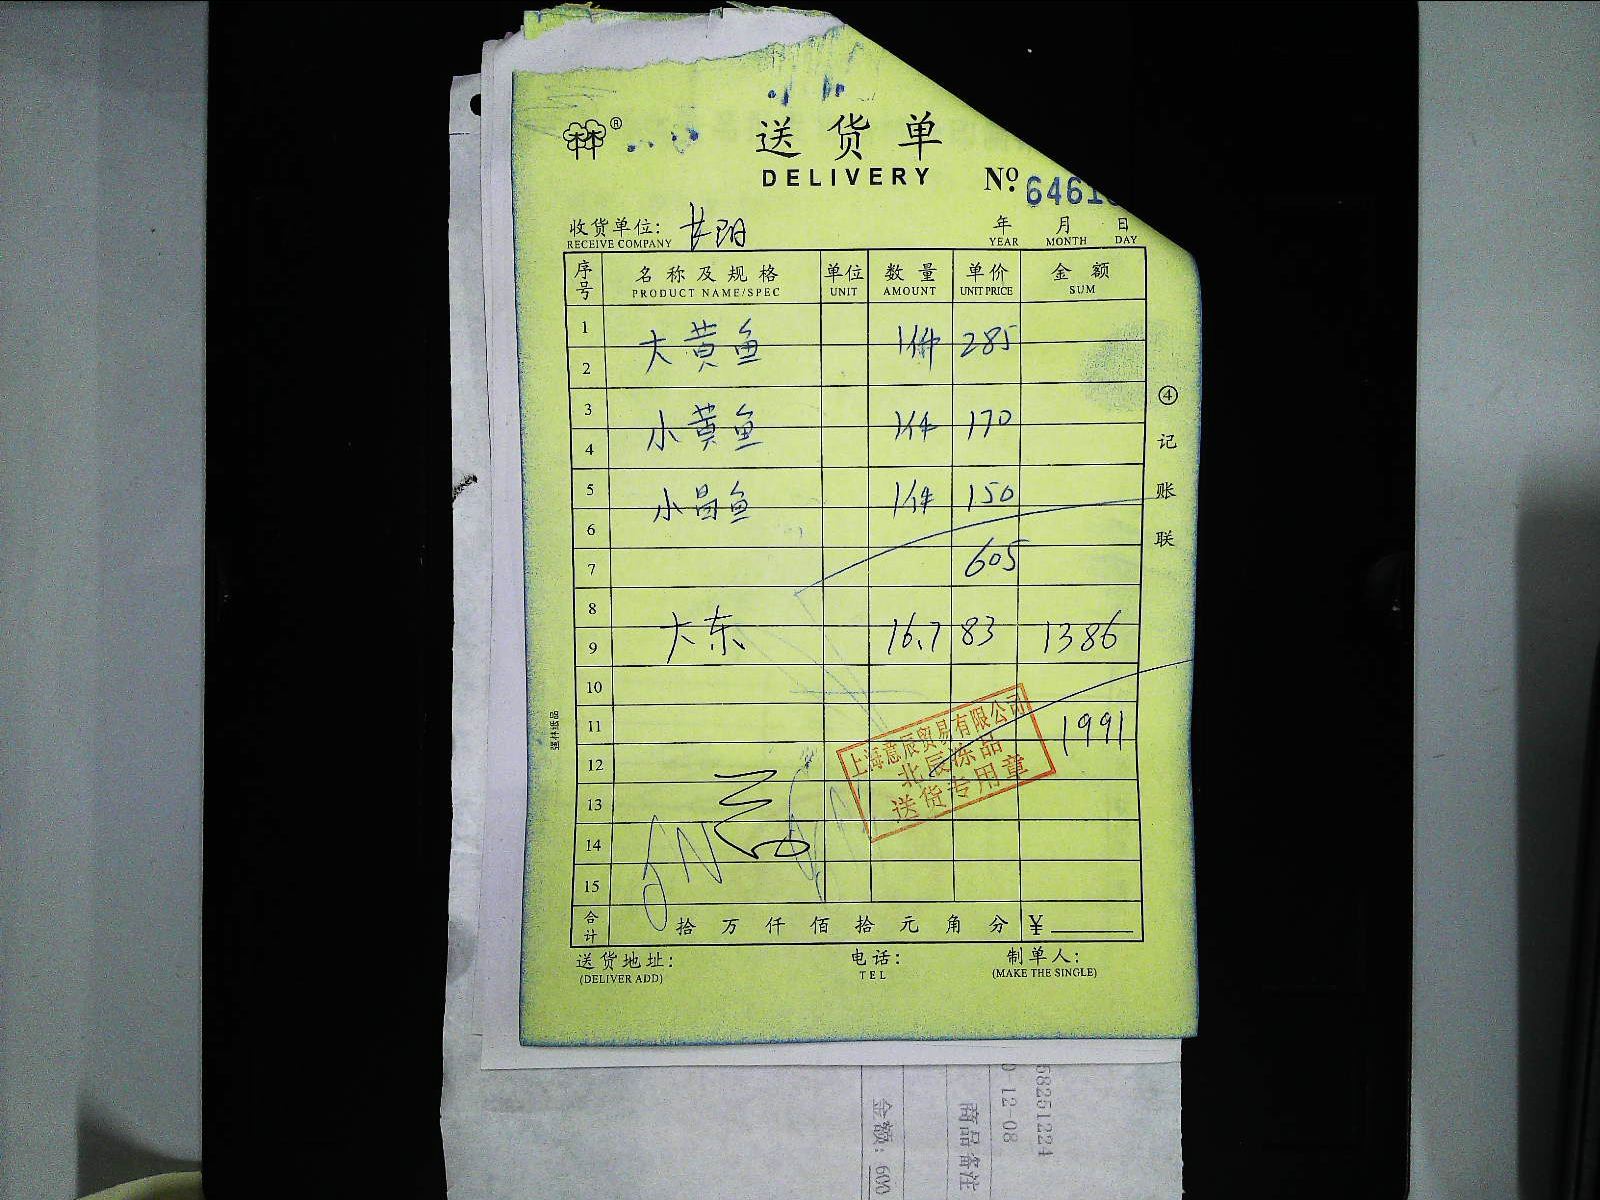 ®
送货单
DELIVERY
Nº 6461
收货单位:
RECEIVE COMPANY
年 月 日
YEAR MONTH DAY
序号 名称及规格 单位 数量 单价 金额
PRODUCT NAME/SPEC UNIT AMOUNT UNIT PRICE SUM
1
大黄鱼 1件 285
2
3
小黄鱼 1件 170
4
5
小昌鱼 1件 150
6
7 605
8
大东 16.7 83 1386
9
10
11 1991
12
13
14
15
上海意辰贸易有限公司
北辰冻品
送货专用章
合计 拾 万 仟 佰 拾 元 角 分 ¥
送货地址: 电话: 制单人:
(DELIVER ADD) TEL (MAKE THE SINGLE)
④记账联
强林纸品
58251224
12-08
商品备注
金额: 600